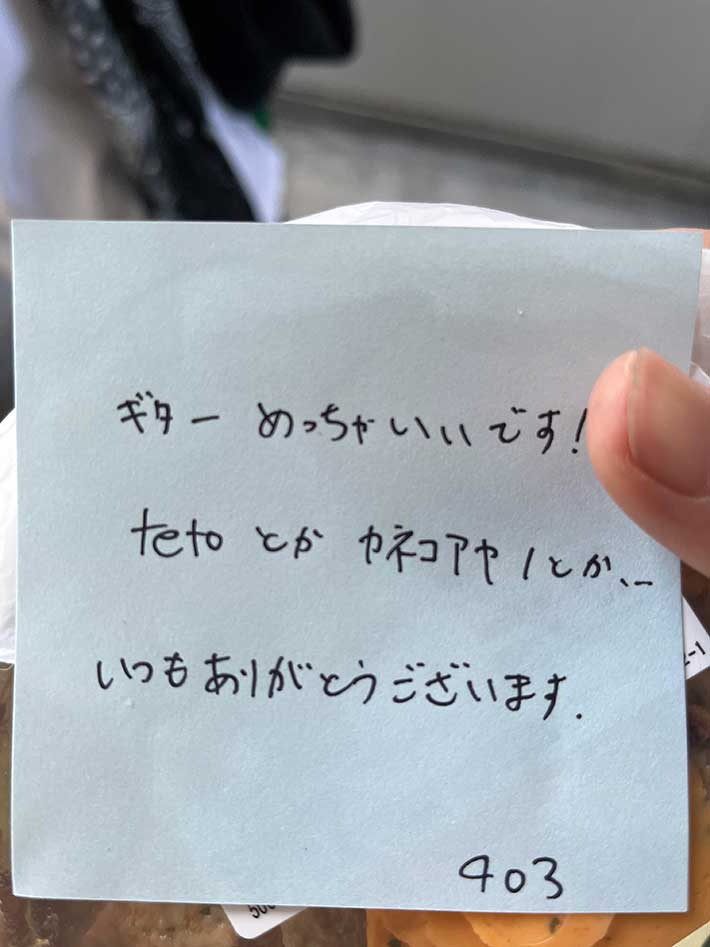 ギター めっちゃいいです!
teto とか カネコアヤノとか、、
いつもありがとうございます.
403